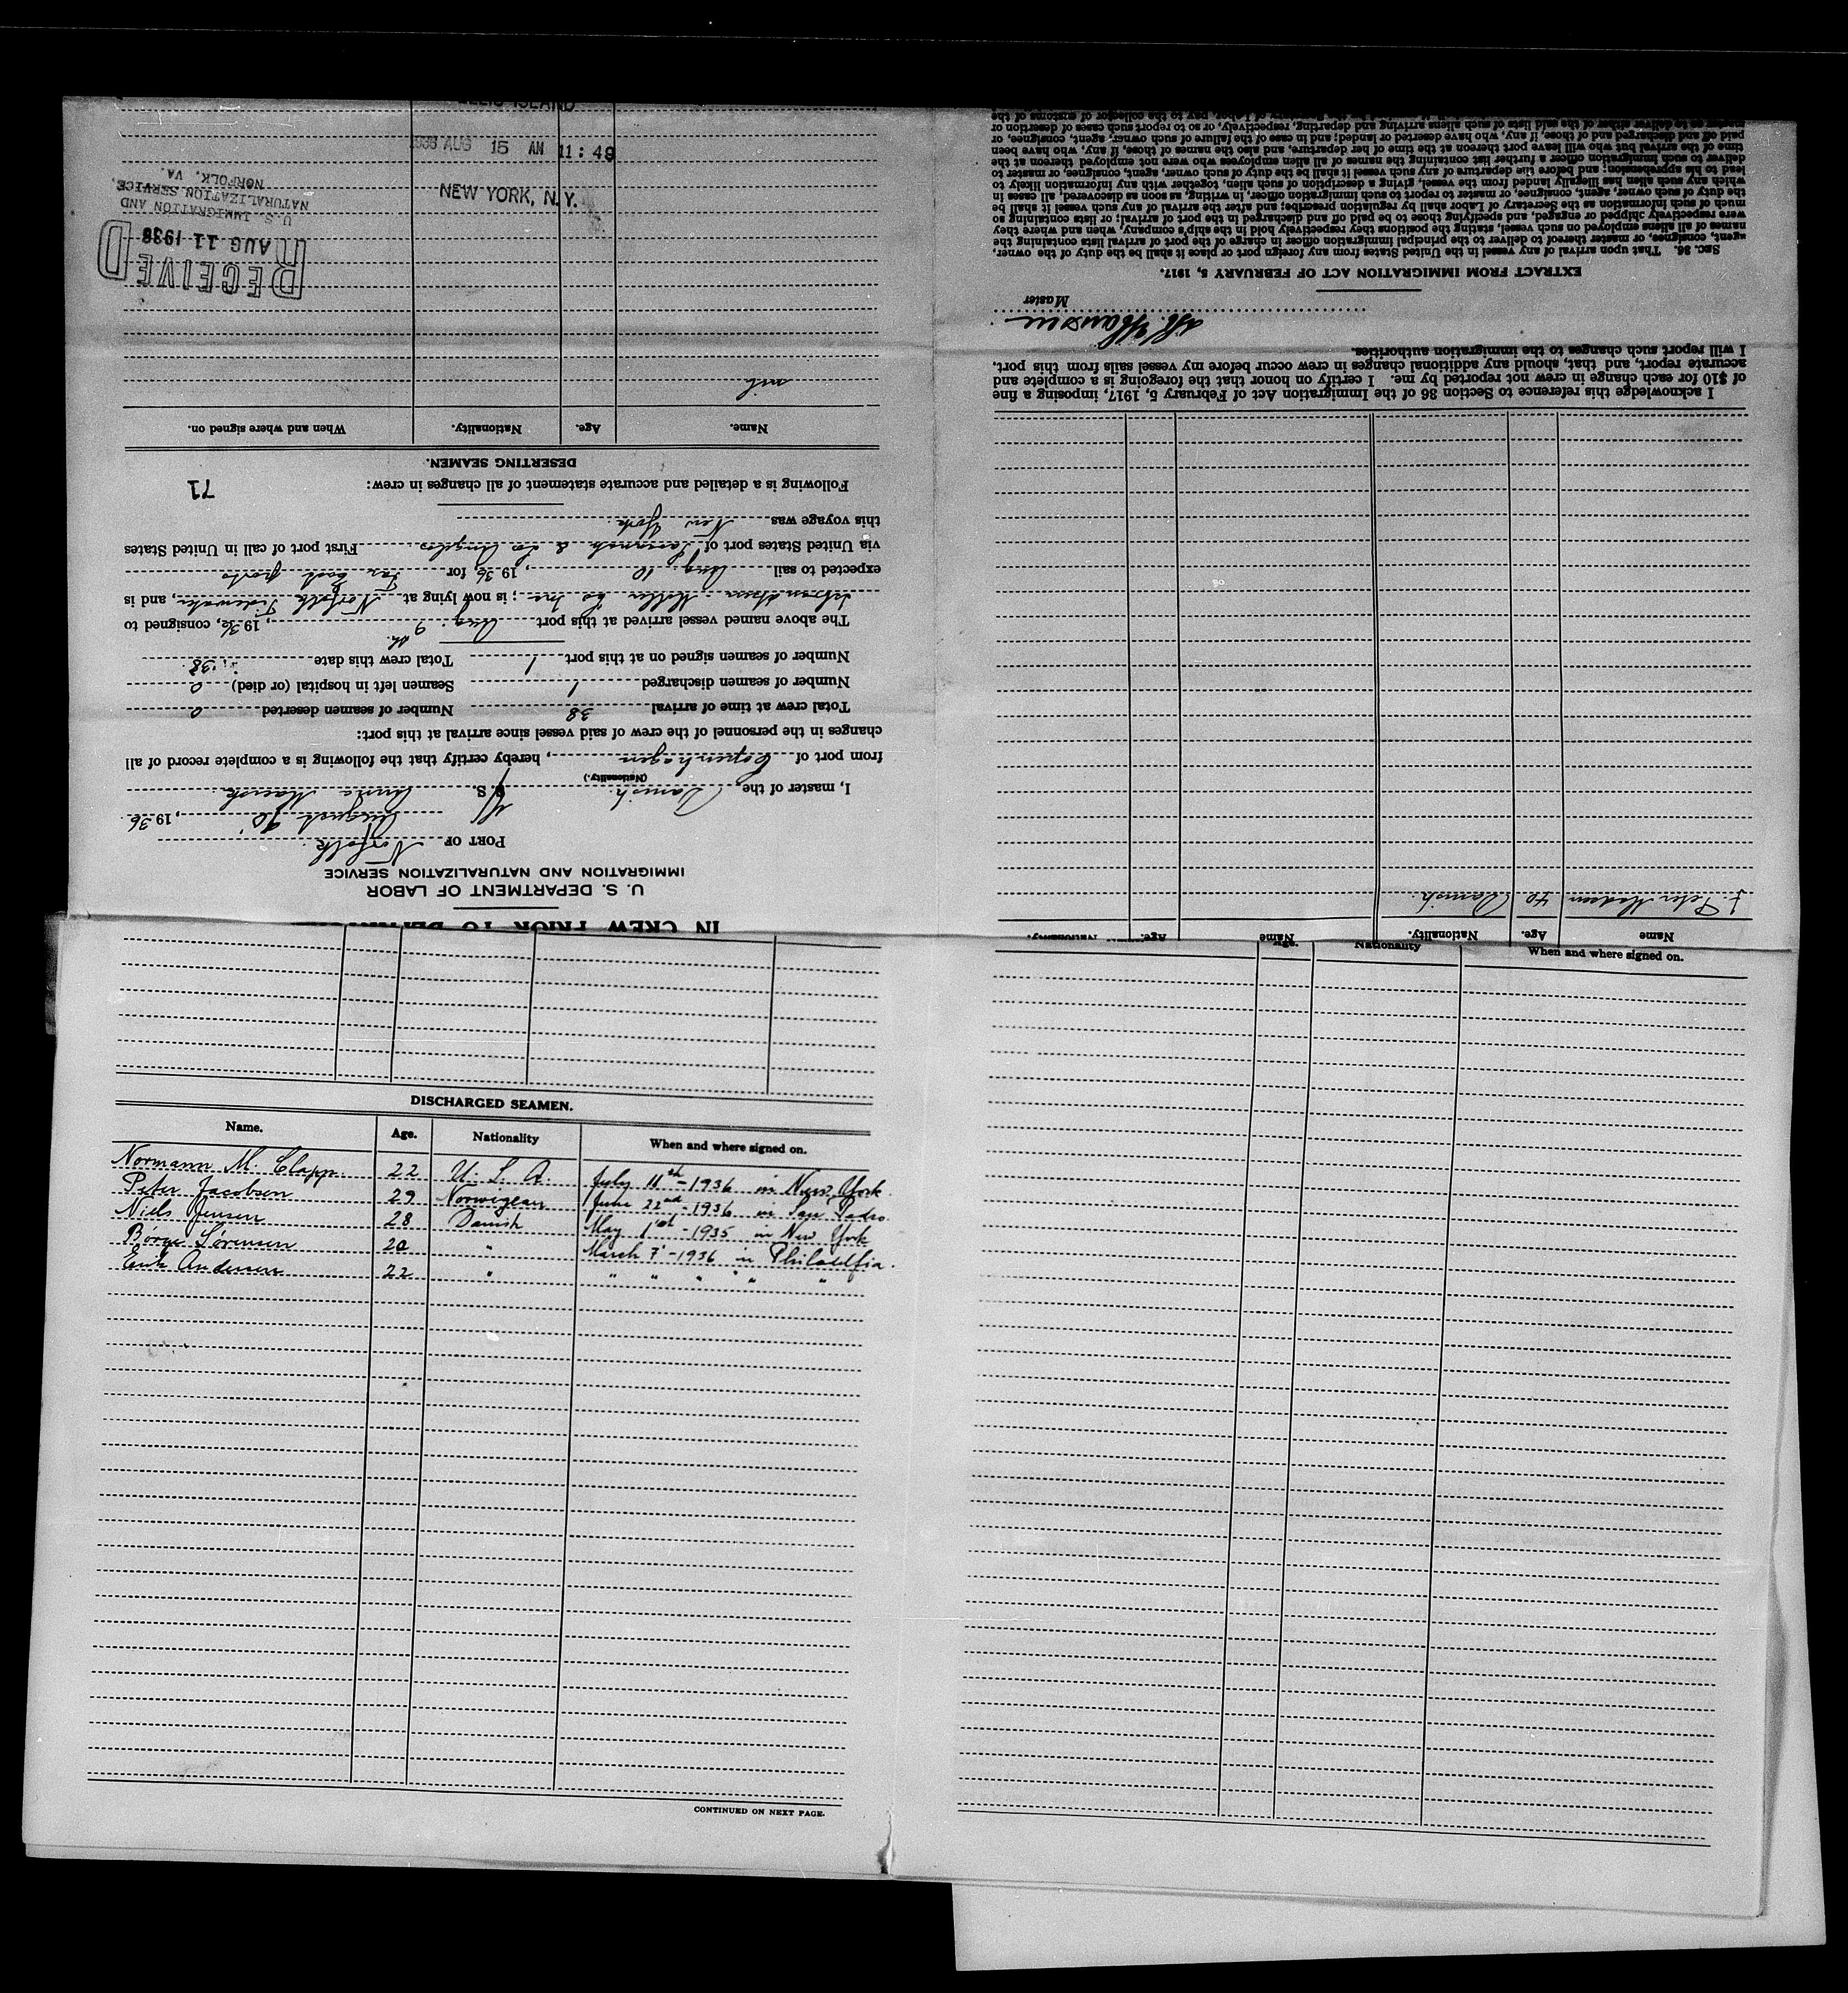 IN CREW PRIOR TO
U. S. DEPARTMENT OF LABOR
IMMIGRATION AND NATURALIZATION SERVICE
PORT OF Norfolk.
August 10', 1936.
I, master of the Danish. S. S. Anna Maersk
(Nationality.)
from port of Copenhagen, hereby certify that the following is a complete record of all
changes in the personnel of the crew of said vessel since arrival at this port:
Total crew at time of arrival 38 Number of seamen deserted 0
Number of seamen discharged 1 Seamen left in hospital (or died) 0
Number of seamen signed on at this port 1 Total crew this date 38.
The above named vessel arrived at this port Aug. 9 th., 1936, consigned to
Moller Co Inc; is now lying at Norfolk Tidewater, and is
expected to sail Aug. 10, 1936, for Far East ports
via United States port of Savannah & Los Angelos. First port of call in United States
this voyage was New York.
Following is a detailed and accurate statement of all changes in crew:
71
DESERTING SEAMEN.
Name. Age. Nationality. When and where signed on.
nil
RECEIVED
AUG 11 1936
U.S. IMMIGRATION AND
NATURALIZATION SERVICE,
NORFOLK, VA.
NEW YORK, N.Y.
1936 AUG 15 AM 11:49
ELLIS ISLAND
Name Age. Nationality. Name Age. Nationality.
J. Peter Madsen 40 Danish.
I acknowledge this reference to Section 36 of the Immigration Act of February 5, 1917, imposing a fine
of $10 for each change in crew not reported by me. I certify on honor that the foregoing is a complete and
accurate report, and that, should any additional changes in crew occur before my vessel sails from this port,
I will report such changes to the immigration authorities.
Master
EXTRACT FROM IMMIGRATION ACT OF FEBRUARY 5, 1917.
SEC. 36. That upon arrival of any vessel in the United States from any foreign port or place it shall be the duty of the owner,
agent, consignee, or master thereof to deliver to the principal immigration officer in charge of the port of arrival lists containing the
names of all aliens employed on such vessel, stating the positions they respectively hold in the ship's company, when and where they
were respectively shipped or engaged, and specifying those to be paid off and discharged in the port of arrival; or lists containing so
much of such information as the Secretary of Labor shall by regulation prescribe; and after the arrival of any such vessel it shall be
the duty of such owner, agent, consignee, or master to report to such immigration officer, in writing, as soon as discovered, all cases in
which any such alien has illegally landed from the vessel, giving a description of such alien, together with any information likely to
lead to his apprehension; and before the departure of any such vessel it shall be the duty of such owner, agent, consignee, or master to
deliver to such immigration officer a further list containing the names of all alien employees who were not employed thereon at the
time of the arrival but who will leave port thereon at the time of her departure, and also the names of those, if any, who have been
paid off and discharged and of those, if any, who have deserted or landed; and in case of the failure of such owner, agent, consignee, or
master so to deliver either of the said lists of such aliens arriving and departing, respectively, or so to report such cases of desertion or
of Labor, pay to the collector of customs of the
DISCHARGED SEAMEN.
Name. Age. Nationality When and where signed on.
Normann M. Clapp. 22 U. S. A. July 11th-1936 in New York.
Peter Jacobsen 29 Norwigean June 22nd-1936 in San Pedro.
Niels Jensen 28 Danish May 1'st-1935 in New York
Børge Sørensen 20 " March 7'-1936 in Philadelfia.
Erik Andersen 22 " " " " " " "
CONTINUED ON NEXT PAGE.
Age. Nationality When and where signed on.